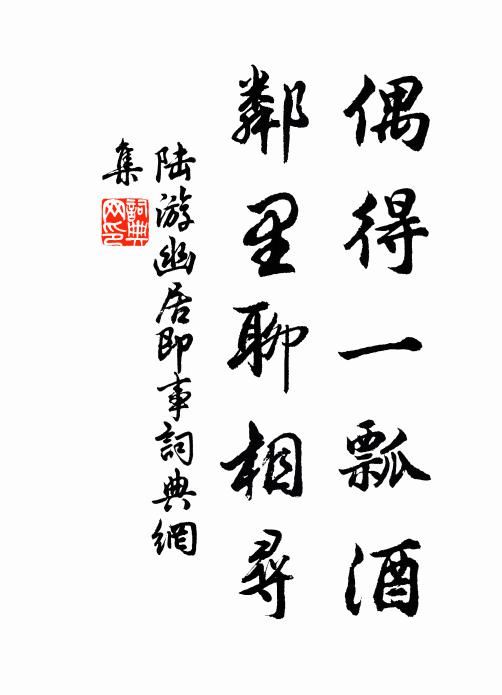 偶得一瓢酒
鄰里聊相尋
陆游幽居即事詞典網
集
詞典网印